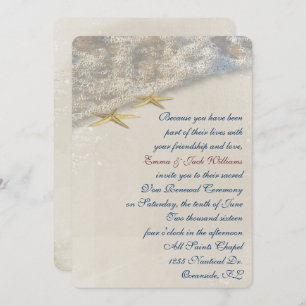 Because you have been
part of their lives with
your friendship and love,
Emma & Jack Williams
invite you to their sacred
Vow Renewal Ceremony
on Saturday, the tenth of June
Two thousand sixteen
four o'clock in the afternoon
All Saints Chapel
1255 Nautical Dr.
Oceanside, FL